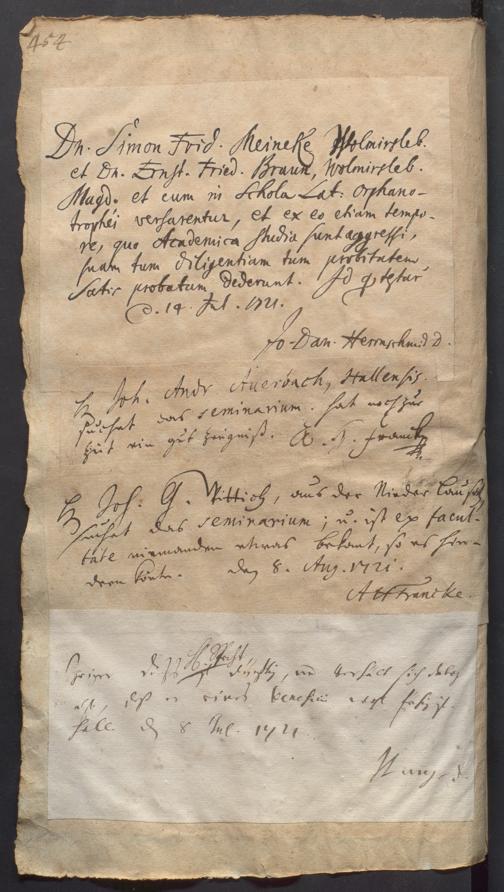 454
Dn. Simon Frid. Meineke Wolmirsleb.
et Dn. Ernst. Fried. Braun, Wolmirsleb.
Magd. et cum in Schola Lat. Orphano-
trophéi versarentur, et ex eo etiam tempo-
re, quo Academica studia sunt aggressi,
suam tum diligentiam tum probitatem
satis probatam dederunt. Id
d. 14. Jul. 1721.
Jo. Dan. Herrnschmid D.
H Joh. Andr Auerbach, Hallensis.
suchet das seminarium. hat noch zur
Zeit ein gut Zeugniß. A. H. Franck
H Joh. G. Wittich, aus der Nieder Lausitz
suchet das seminarium; u. ist ex facul-
tate niemanden etwas bekant, so es hin-
dern könte. den 8. Aug. 1721.
AHFrancke.
dürftig, und verhält sich dabey
daß er eines beneficii
Halle d 8 Jul. 1721